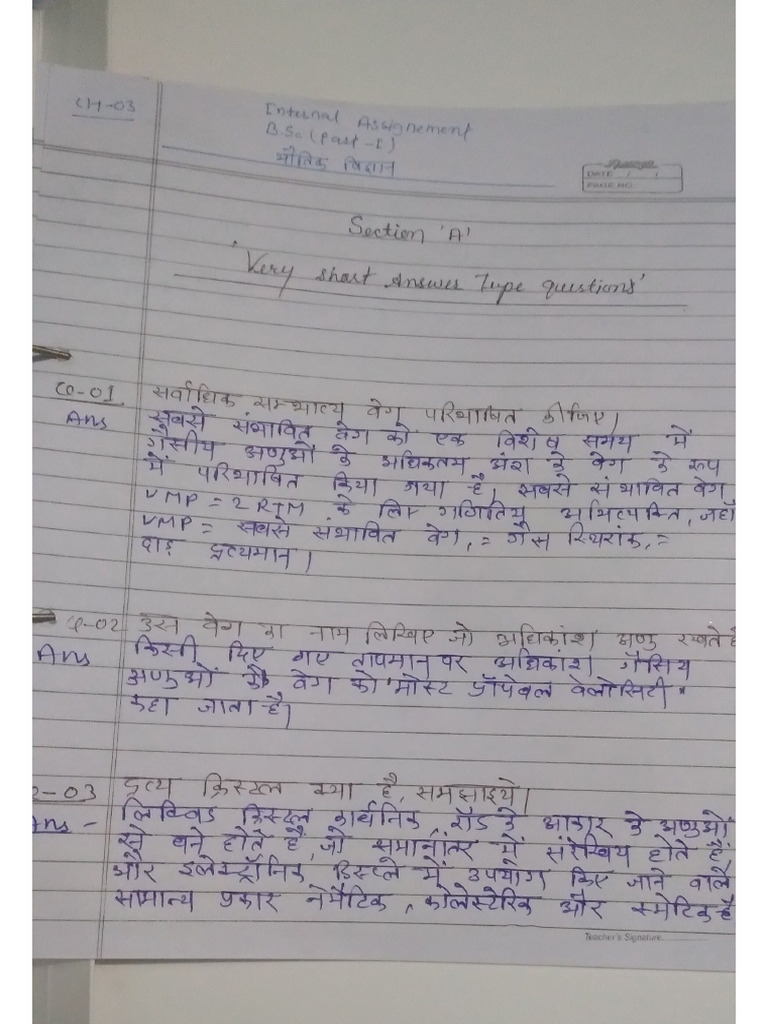 CH-03
Internal Assignement
B.Sc (Part-I)
भौतिक विज्ञान
DATE / /
PAGE NO.
Section 'A'
'Very short Answer Type questions'
Q-01 सर्वाधिक सम्भाव्य वेग परिभाषित कीजिए।
Ans सबसे संभावित वेग को एक विशेष समय में
गैसीय अणुओं के अधिकतम अंश के वेग के रूप
में परिभाषित किया गया है, सबसे संभावित वेग
VMP = 2RTM के लिए गणितिय अभिव्यक्ति, जहाँ
VMP = सबसे संभावित वेग, = गैस स्थिरांक, =
दाढ़ द्रव्यमान।
Q-02 उस वेग का नाम लिखिए जो अधिकांश अणु रखते है
Ans किसी दिए गए तापमान पर अधिकांश गैसिय
अणुओं के वेग को "मोस्ट प्रॉपेबल वेलोसिटी"
कहा जाता है।
Q-03 द्रव्य क्रिस्टल क्या है, समझाइये।
Ans - लिक्विड क्रिस्टल कार्बनिक, रॉड के आकार के अणुओं
से बने होते है, जो समानांतर में संरेखिय होते है,
और इलेक्ट्रॉनिक डिस्प्ले में उपयोग किए जाने वाले
सामान्य प्रकार नेमैटिक, कोलेस्टेरिक और स्मेटिक है
Teacher's Signature